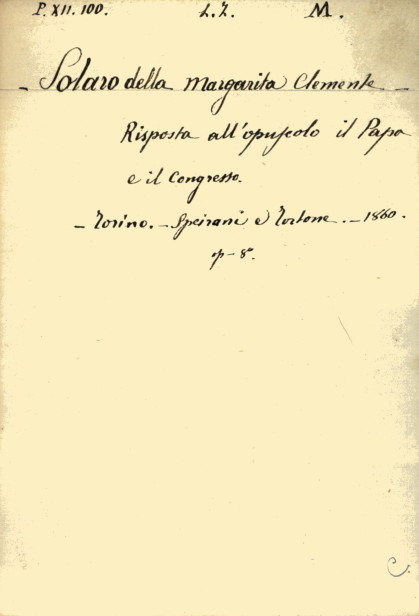 P. XII. 100. L.Z. M.
- Solaro della Margarita Clemente -
Risposta all'opuscolo il Papa
e il Congresso.
- Torino. - Speirani e Tortone. - 1860.
op - 8°.
C.